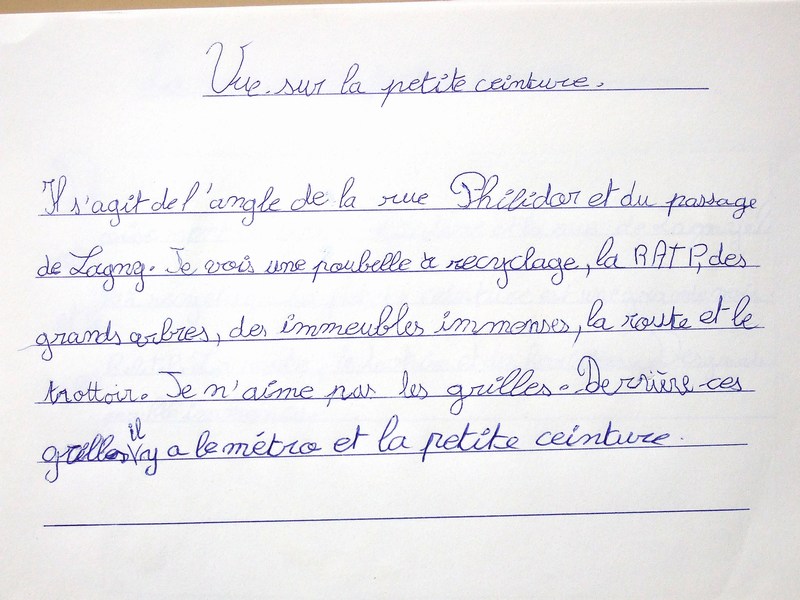 Vue sur la petite ceinture.
Il s'agit de l'angle de la rue Philidor et du passage
de Lagny. Je vois une poubelle à recyclage, la RATP, des
grands arbres, des immeubles immenses, la route et le
trottoir. Je n'aime pas les grilles. Derrière ces
grilles il y a le métro et la petite ceinture.